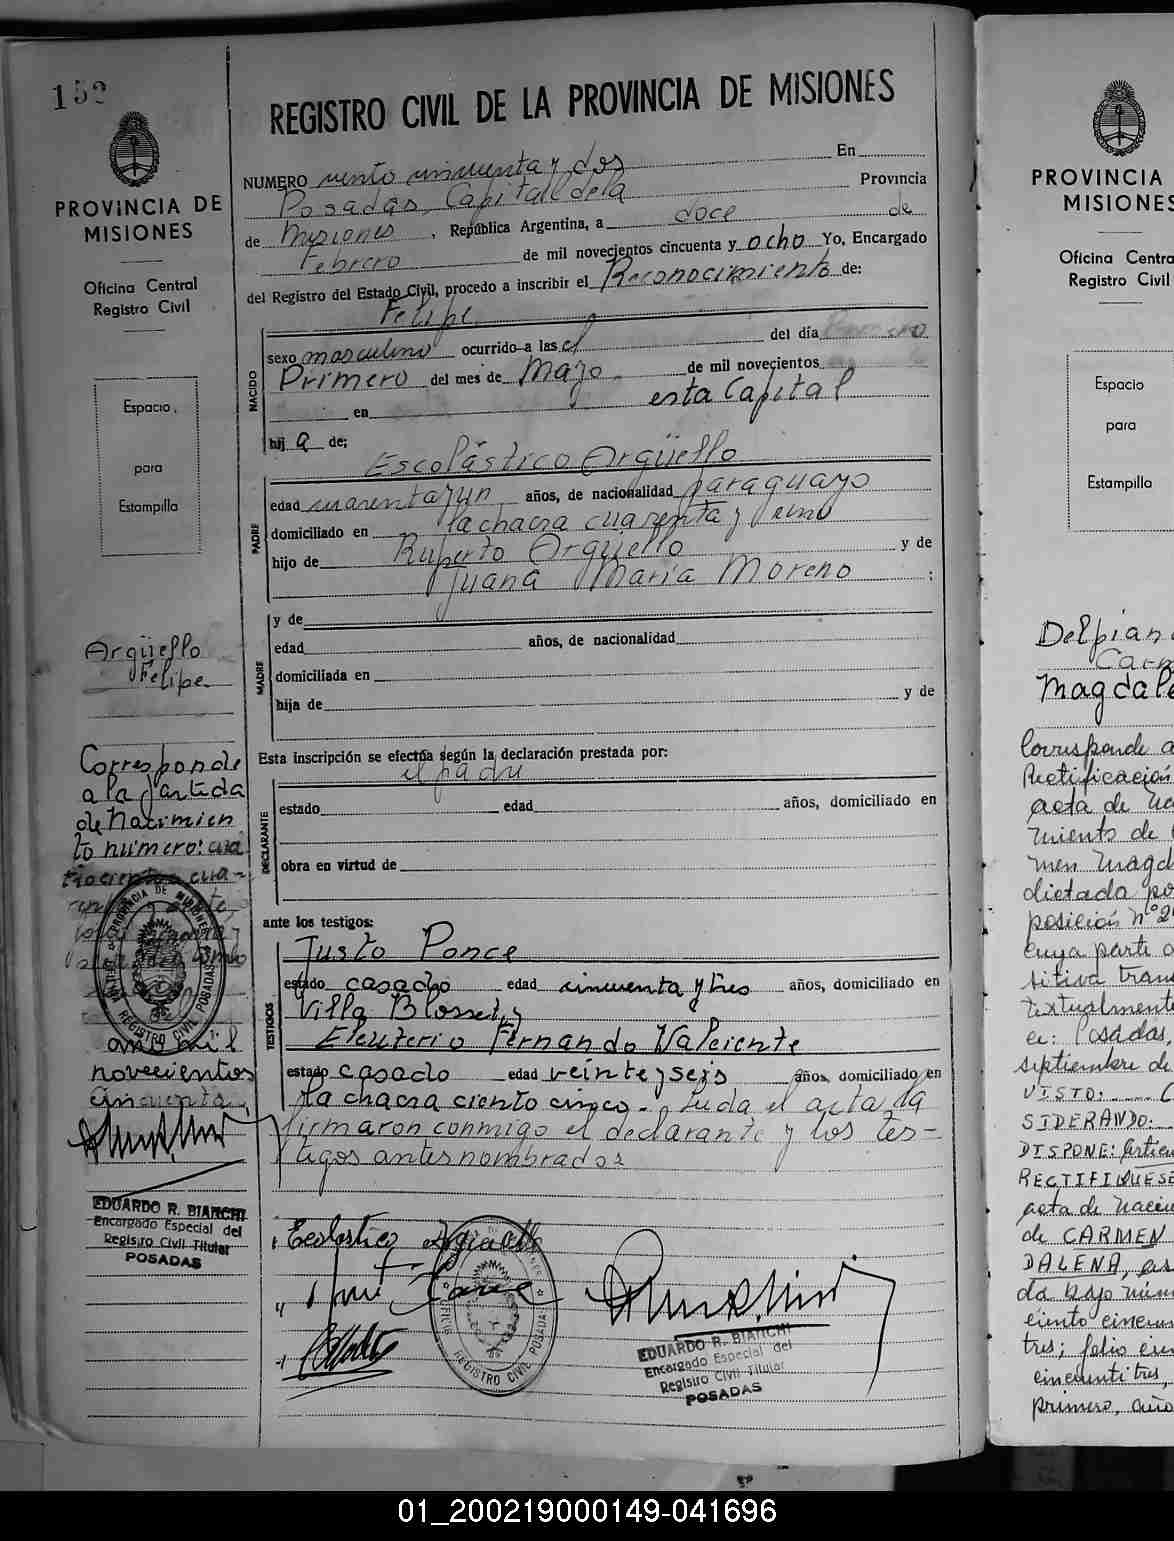 152
PROVINCIA DE
MISIONES
Oficina Central
Registro Civil
Espacio
para
Estampilla
Argüello
Felipe
Corresponde
a la partida
de nacimien
to número: cua
trociento cua-
año mil
novecientos
cincuenta
EDUARDO R. BIANCHI
Encargado Especial del
Registro Civil Titular
POSADAS
REGISTRO CIVIL DE LA PROVINCIA DE MISIONES
NUMERO ciento cincuenta y dos En
Posadas, Capital de la Provincia
de Misiones, República Argentina, a doce de
Febrero de mil novecientos cincuenta y ocho Yo, Encargado
del Registro del Estado Civil, procedo a inscribir el Reconocimiento de:
Felipe
NACIDO
sexo masculino ocurrido a las el del día
Primero del mes de Mayo de mil novecientos
en esta Capital
hij a de:
Escolástico Argüello
PADRE
edad cuarenta y un años, de nacionalidad paraguayo
domiciliado en la chacra cuarenta y uno
hijo de Ruperto Argüello y de
Juana María Moreno ;
MADRE
y de
edad años, de nacionalidad
domiciliada en
hija de y de
Esta inscripción se efectúa según la declaración prestada por:
el padre
DECLARANTE
estado edad años, domiciliado en
obra en virtud de
ante los testigos:
TESTIGOS
Justo Ponce
estado casado edad cincuenta y tres años, domiciliado en
Villa Blosset, y
Eleuterio Fernando Valiente
estado casado edad veinte y seis años, domiciliado en
la chacra ciento cinco.- Leída el acta la
firmaron conmigo el declarante y los tes-
tigos antes nombrados
Escolastico Arguello
EDUARDO R. BIANCHI
Encargado Especial del
Registro Civil Titular
POSADAS
PROVINCIA
MISIONES
Oficina Centra
Registro Civil
Espacio
para
Estampilla
Delpian
Carm
Magdale
Corresponde a
Rectificación
acta de Nac
miento de
men Magd
dictada po
posición Nº 2
cuya parte
sitiva tran
textualmente
ce: Posadas,
septiembre de
VISTO:
SIDERANDO:
DISPONE: Articu
RECTIFIQUESE
acta de Nacim
de CARMEN
DALENA, as
da bajo núm
ciento cincuen
tres; folio cien
cincuenti tres,
primero, año
01_200219000149-041696